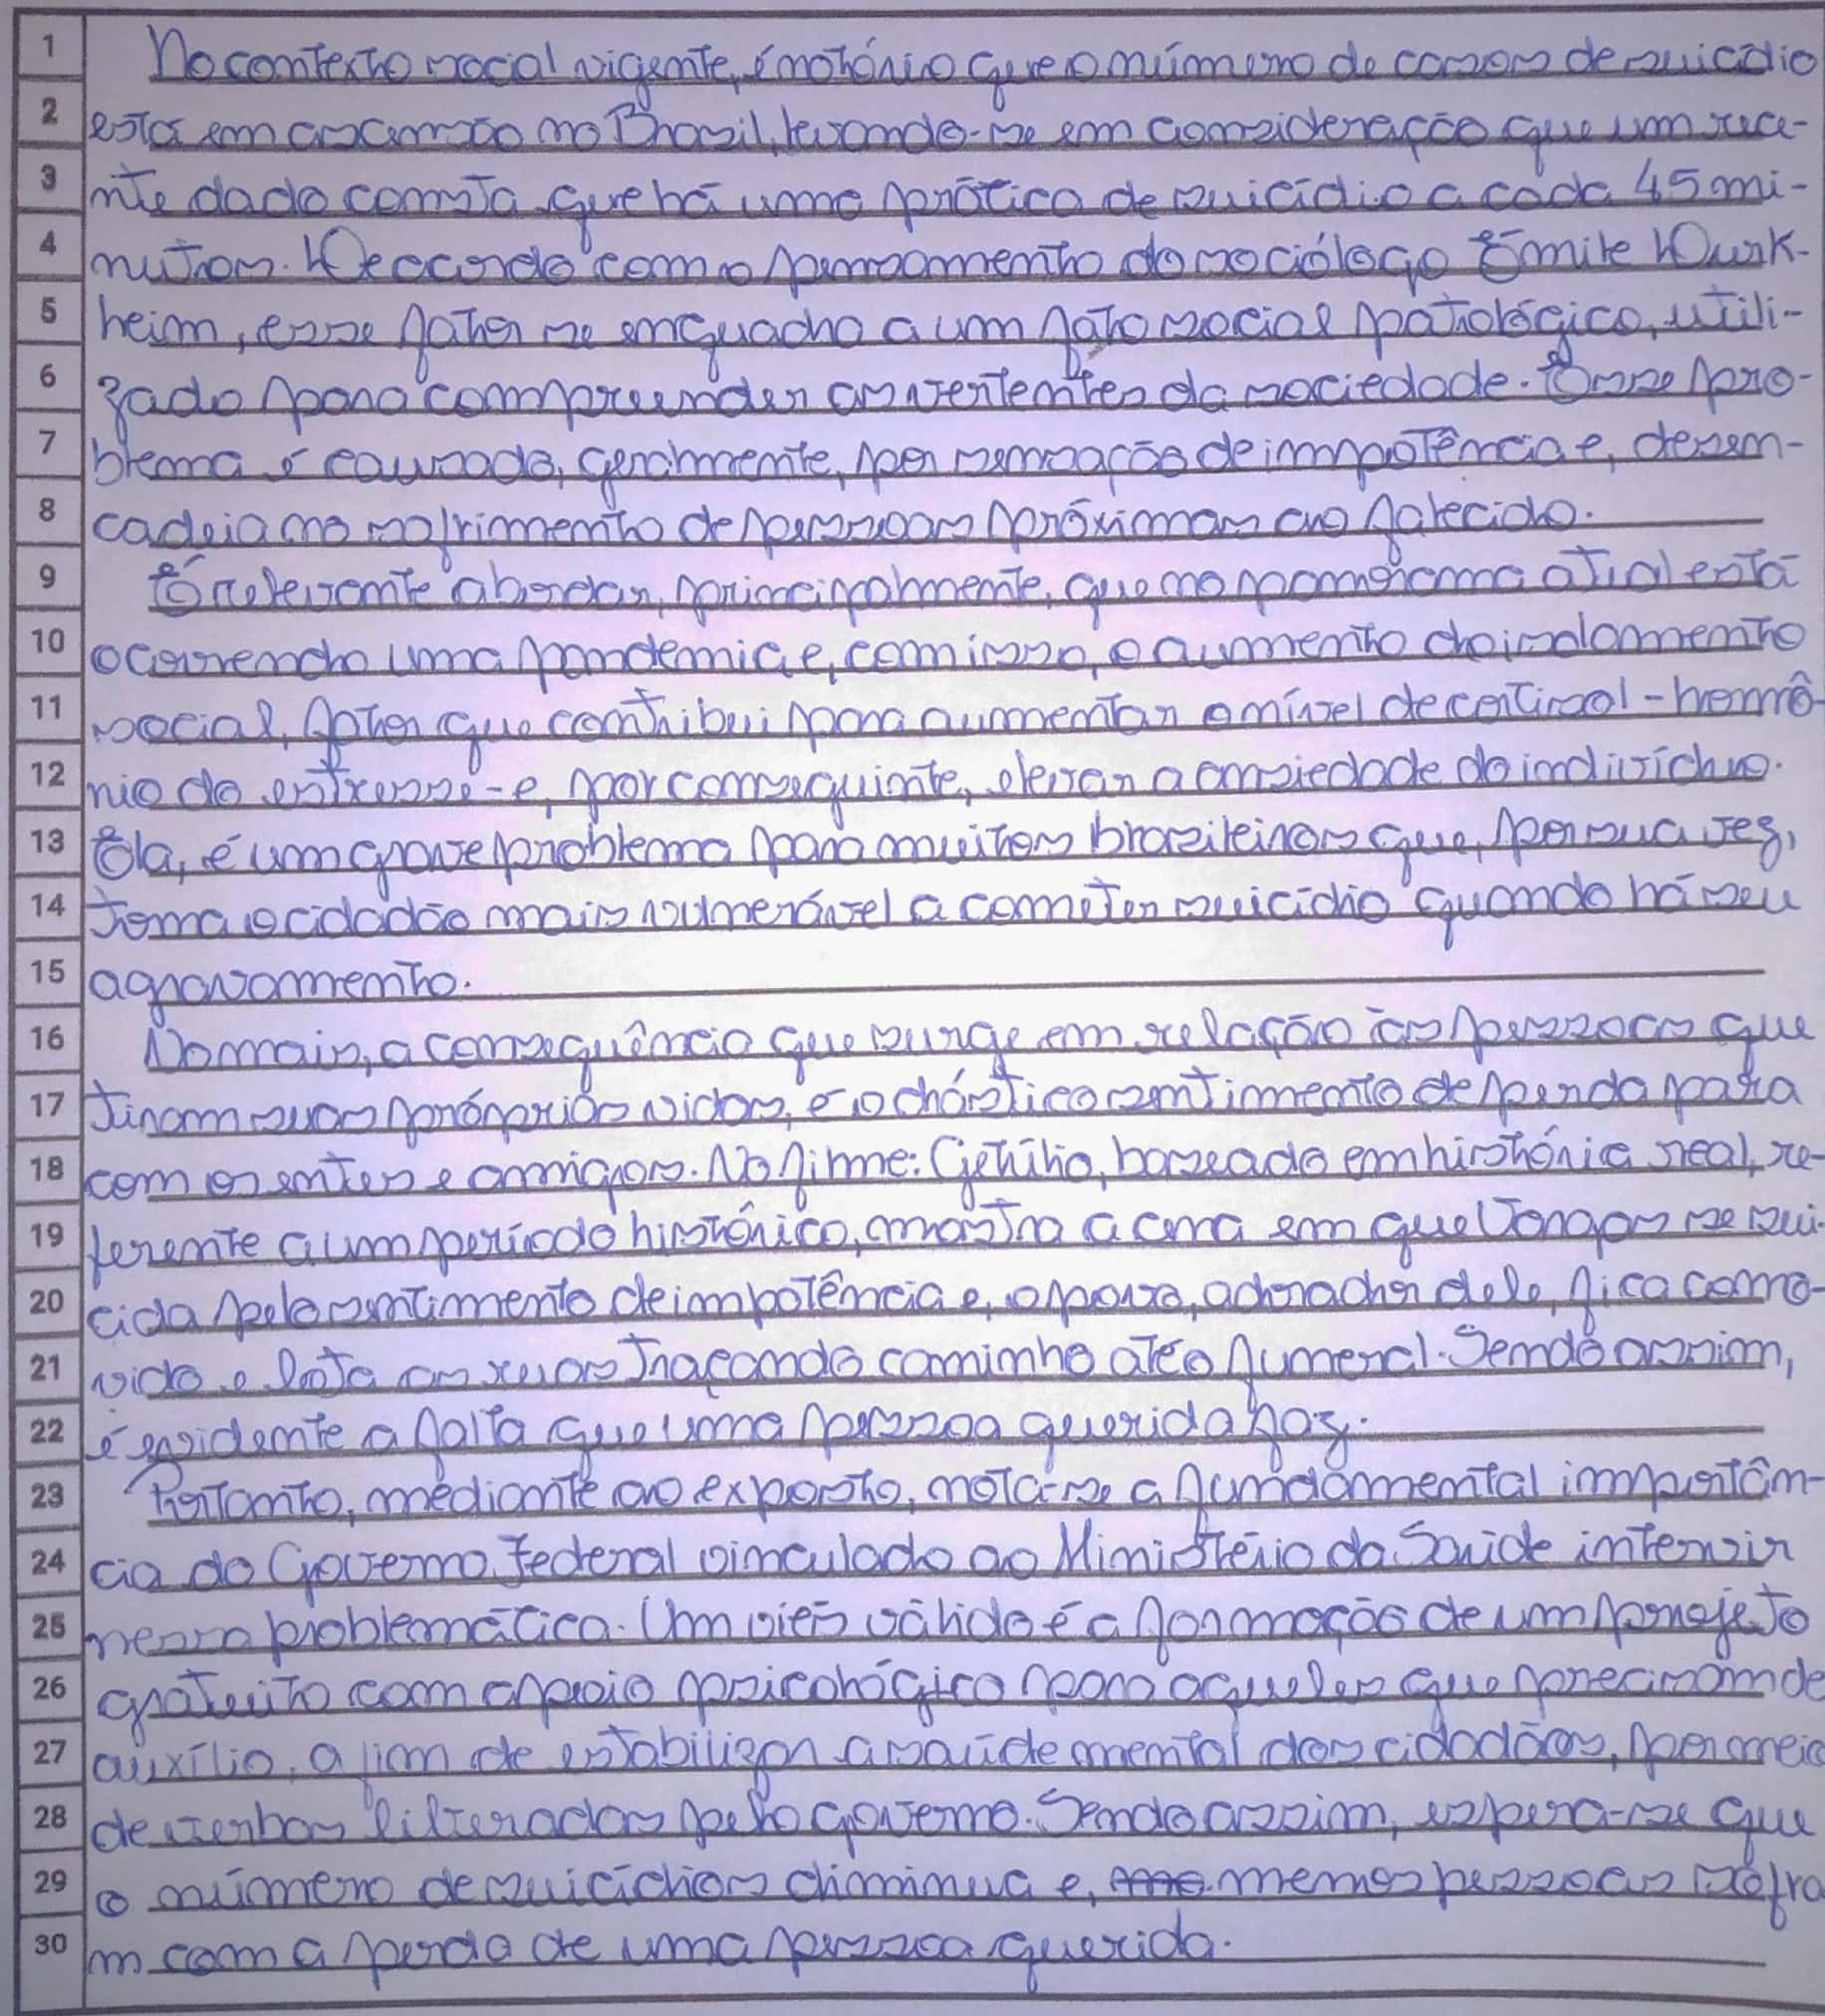 1 No contexto social vigente, é notório que o número de casos de suicídio
2 está em ascensão no Brasil, levando-se em consideração que um rece-
3 nte dado consta que há uma prática de suicídio a cada 45 mi-
4 nutos. De acordo com o pensamento do sociólogo Émile Durk-
5 heim, esse fator se enquadra a um fato social patológico, utili-
6 zado para compreender as vertentes da sociedade. Esse pro-
7 blema é causado, geralmente, por sensação de impotência e, desen-
8 cadeia no sofrimento de pessoas próximas ao falecido.
9 É relevante abordar, principalmente, que no panorama atual está
10 ocorrendo uma pandemia e, com isso, o aumento do isolamento
11 social, fator que contribui para aumentar o nível de cortisol - hormô-
12 nio do estresse - e, por conseguinte, elevar a ansiedade do indivíduo.
13 Ela, é um grave problema para muitos brasileiros que, por sua vez,
14 torna o cidadão mais vulnerável a cometer suicídio quando há seu
15 agravamento.
16 Nomais, a consequência que surge em relação às pessoas que
17 tiram suas próprias vidas, é o drástico sentimento de perda para
18 com os entes e amigos. No filme: Getúlio, baseado em história real, re-
19 ferente a um período histórico, mostra a cena em que Vargas se sui-
20 cida pelo sentimento de impotência e, o povo, adorador dele, fica como-
21 vido e lota as ruas traçando caminho até o funeral. Sendo assim,
22 é evidente a falta que uma pessoa querida faz.
23 Portanto, mediante ao exposto, nota-se a fundamental importân-
24 cia do Governo Federal vinculado ao Ministério da Saúde intervir
25 nessa problemática. Um viés válido é a formação de um projeto
26 gratuito com apoio psicológico para aqueles que precisam de
27 auxílio, a fim de estabilizar a saúde mental dos cidadãos, por meio
28 de verbas liberadas pelo governo. Sendo assim, espera-se que
29 o número de suicídios diminua e, menos pessoas sofra
30 m com a perda de uma pessoa querida.